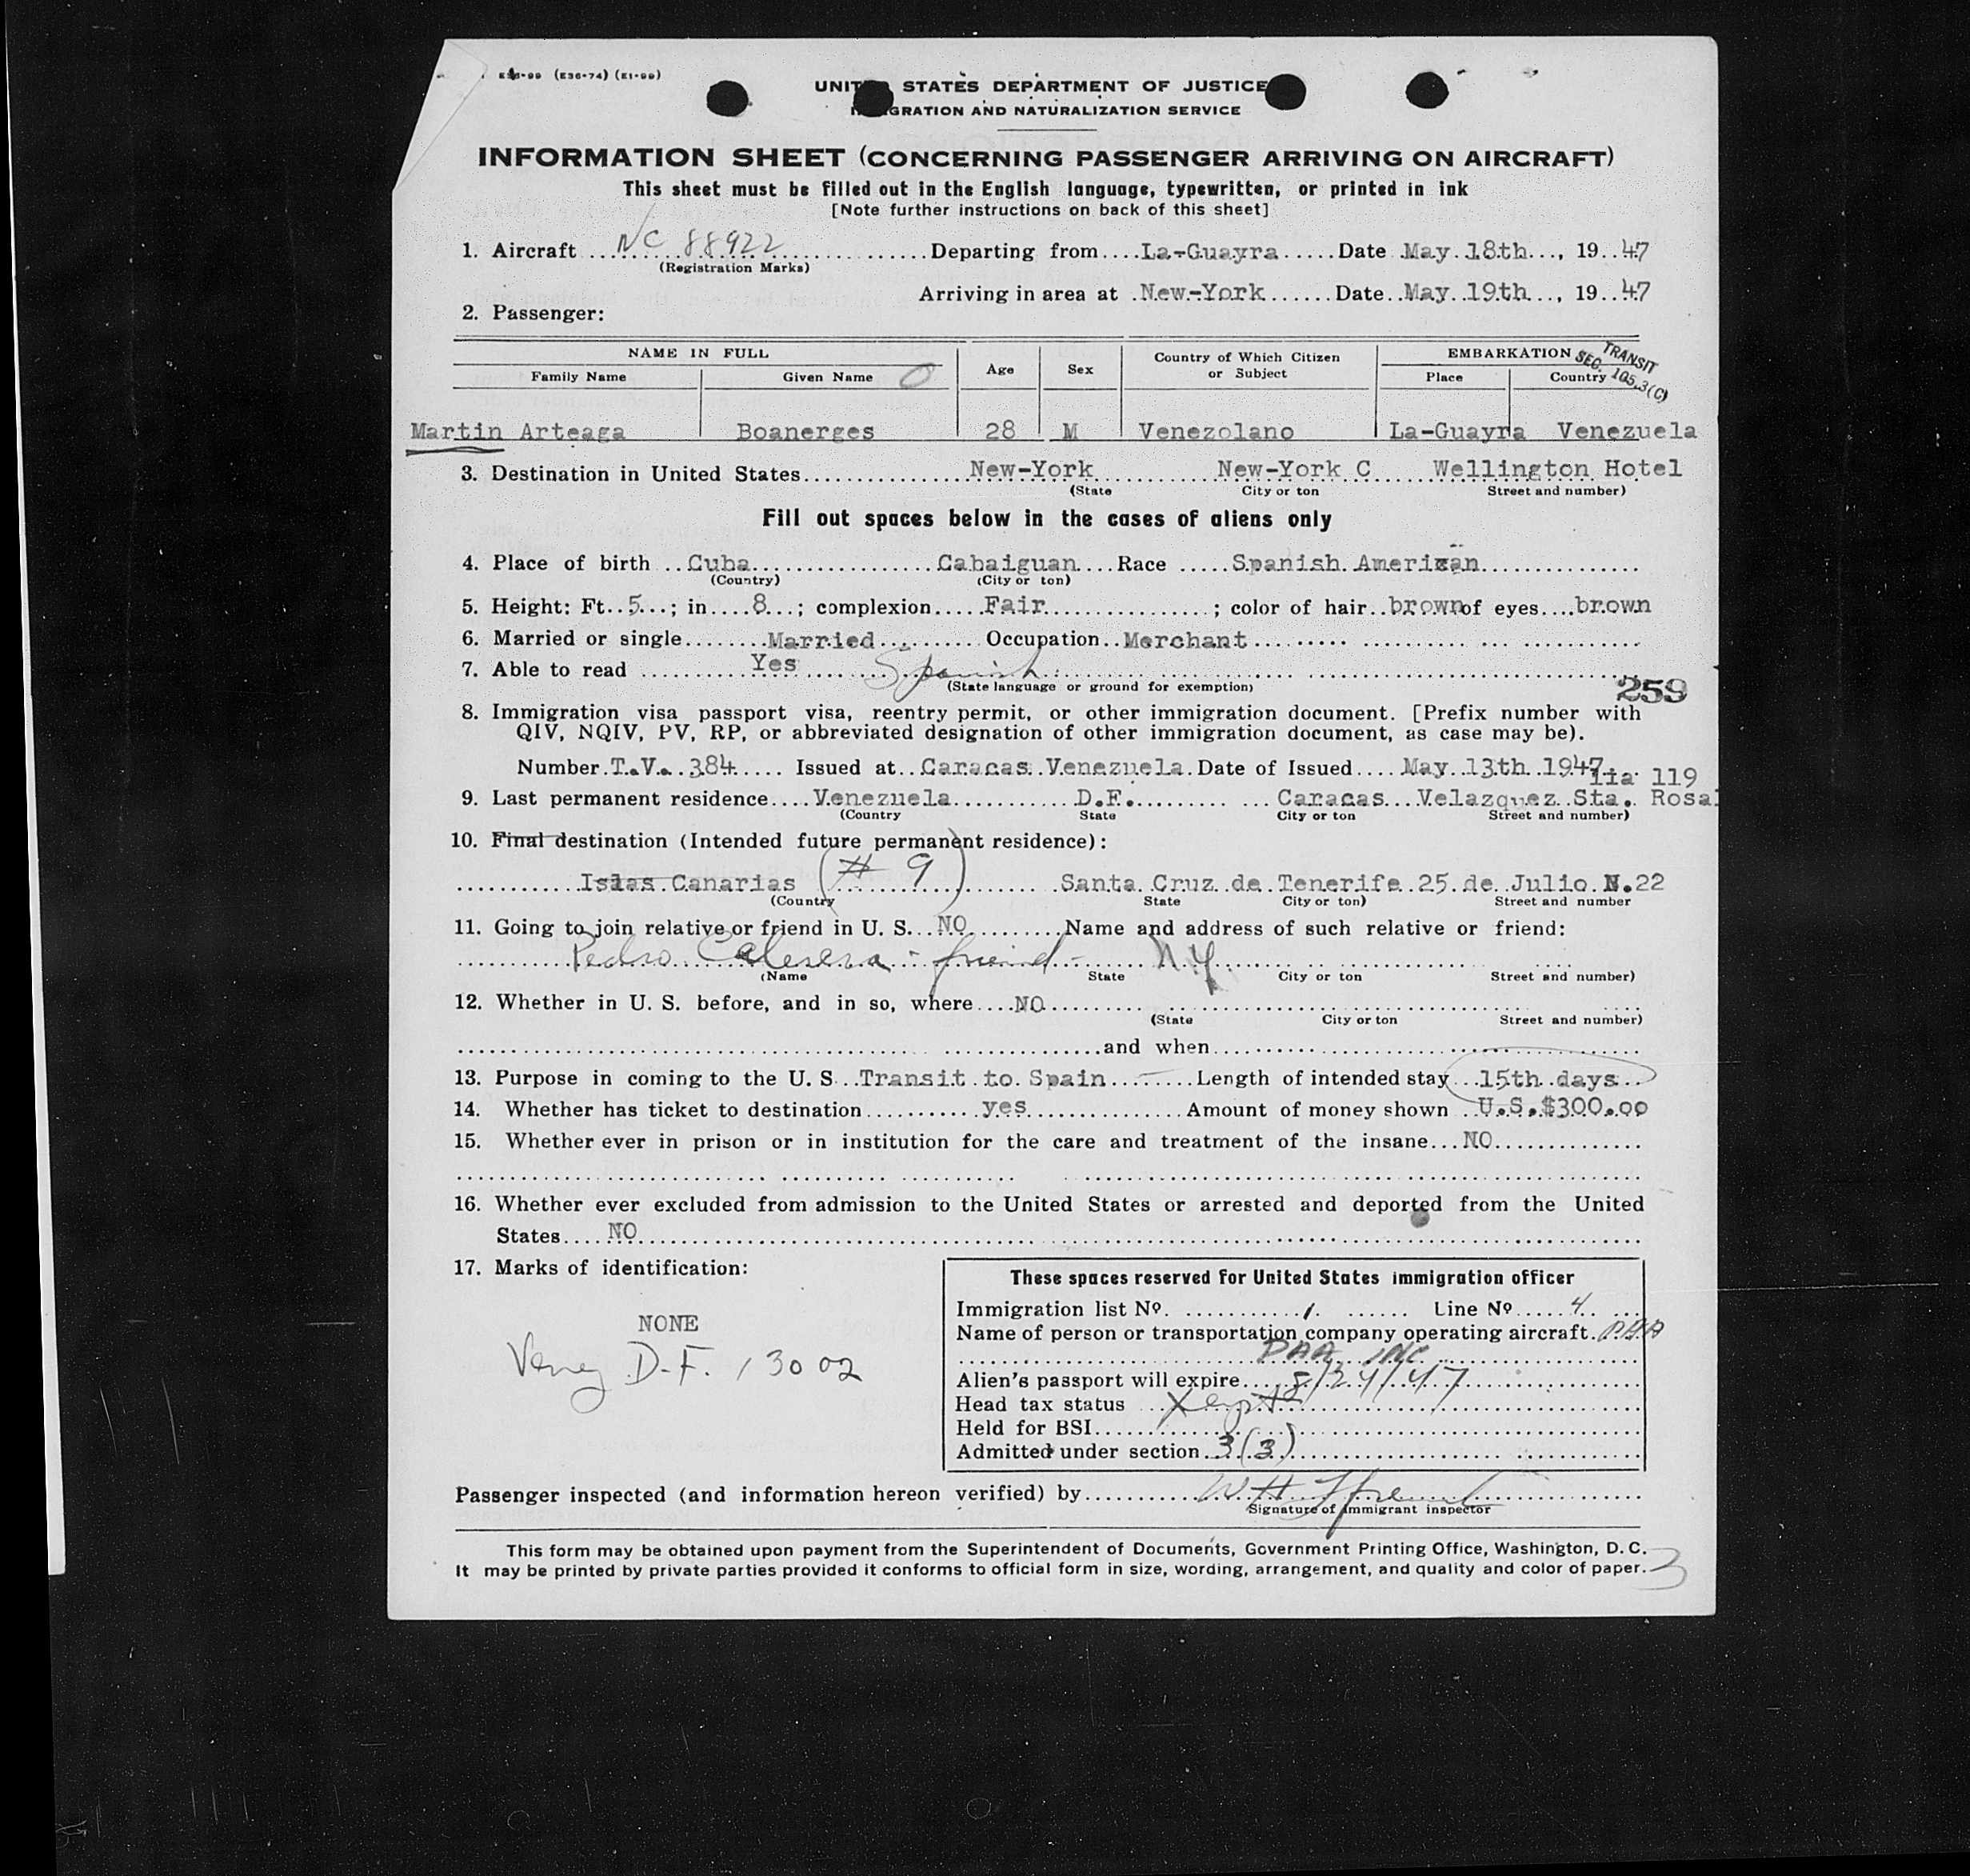 (E36-74) (E1-99)
UNIT STATES DEPARTMENT OF JUSTICE
GRATION AND NATURALIZATION SERVICE
INFORMATION SHEET (CONCERNING PASSENGER ARRIVING ON AIRCRAFT)
This sheet must be filled out in the English language, typewritten, or printed in ink
[Note further instructions on back of this sheet]
1. Aircraft NC 88922 Departing from La-Guayra Date May 18th, 1947
(Registration Marks)
Arriving in area at New-York Date May 19th, 1947
2. Passenger:
NAME IN FULL Age Sex Country of Which Citizen or Subject EMBARKATION
TRANSIT
SEC. 105.3(C)
Family Name Given Name Place Country
Martin Arteaga Boanerges 28 M Venezolano La-Guayra Venezuela
3. Destination in United States New-York New-York C Wellington Hotel
(State City or ton Street and number)
Fill out spaces below in the cases of aliens only
4. Place of birth Cuba Cabaiguan Race Spanish American
(Country) (City or ton)
5. Height: Ft. 5; in 8; complexion Fair; color of hair brown of eyes brown
6. Married or single Married Occupation Merchant
7. Able to read Yes Spanish
(State language or ground for exemption)
259
8. Immigration visa passport visa, reentry permit, or other immigration document. [Prefix number with
QIV, NQIV, PV, RP, or abbreviated designation of other immigration document, as case may be).
Number T.V. 384 Issued at Caracas Venezuela Date of Issued May 13th 1947
lia 119
9. Last permanent residence Venezuela D.F. Caracas Velazquez Sta. Rosa
(Country State City or ton Street and number)
10. Final destination (Intended future permanent residence):
Islas Canarias (# 9) Santa Cruz de Tenerife 25 de Julio N.22
(Country State City or ton) Street and number
11. Going to join relative or friend in U. S. NO Name and address of such relative or friend:
Pedro - friend - N.Y.
(Name State City or ton Street and number)
12. Whether in U. S. before, and in so, where NO
(State City or ton Street and number)
and when
13. Purpose in coming to the U. S Transit to Spain Length of intended stay 15th days
14. Whether has ticket to destination yes Amount of money shown U.S.$300.00
15. Whether ever in prison or in institution for the care and treatment of the insane NO
16. Whether ever excluded from admission to the United States or arrested and deported from the United
States NO
17. Marks of identification:
NONE
Venez D.F. 13002
These spaces reserved for United States immigration officer
Immigration list No. 1 Line No 4
Name of person or transportation company operating aircraft. PAA
PAA INC
Alien's passport will expire 8/24/47
Head tax status Xempt
Held for BSI
Admitted under section 3(3)
Passenger inspected (and information hereon verified) by
Signature of immigrant inspector
This form may be obtained upon payment from the Superintendent of Documents, Government Printing Office, Washington, D. C.
It may be printed by private parties provided it conforms to official form in size, wording, arrangement, and quality and color of paper.
3